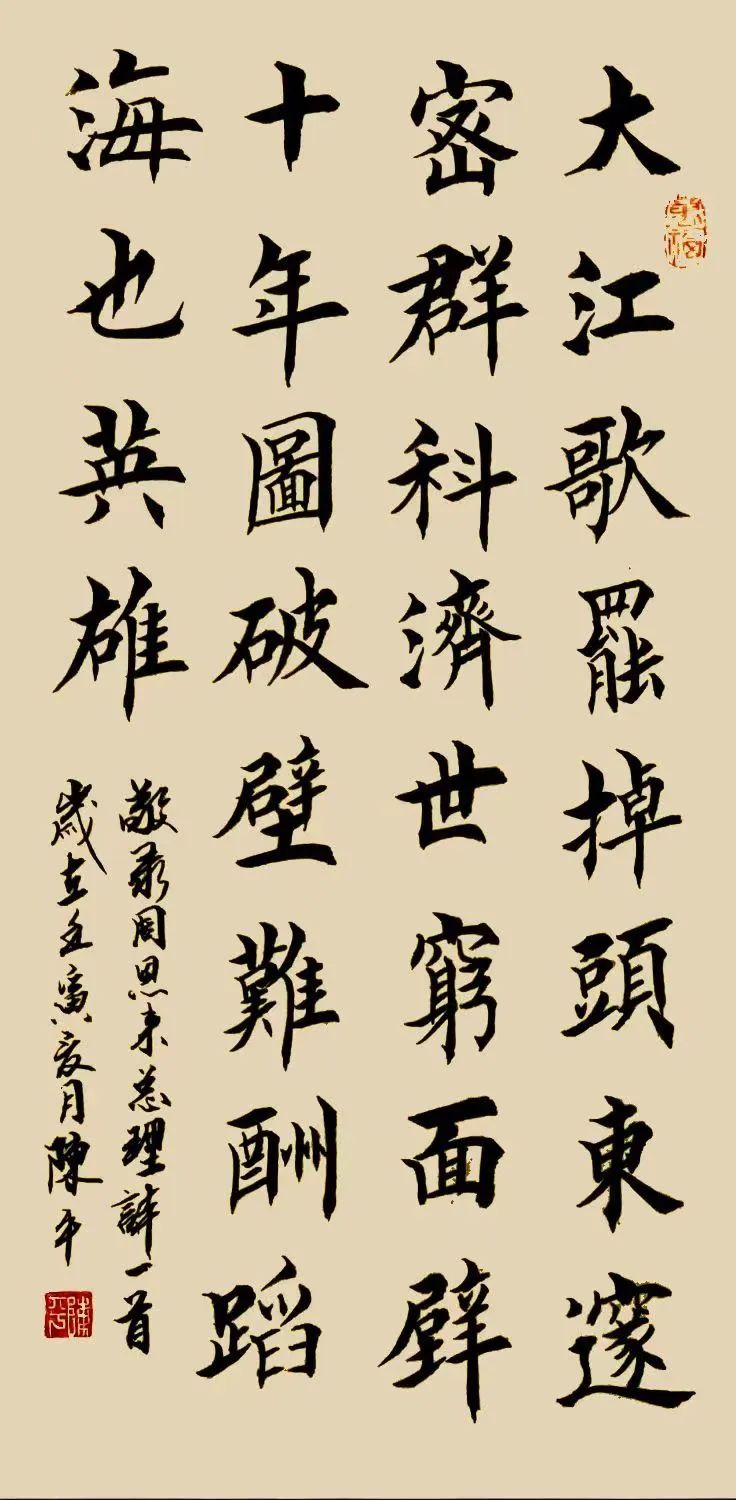 大江歌罷掉頭東邃
密群科濟世窮面壁
十年圖破壁難酬蹈
海也英雄
敬录周恩来总理詩一首
歲在壬寅夏月陳平
陳平